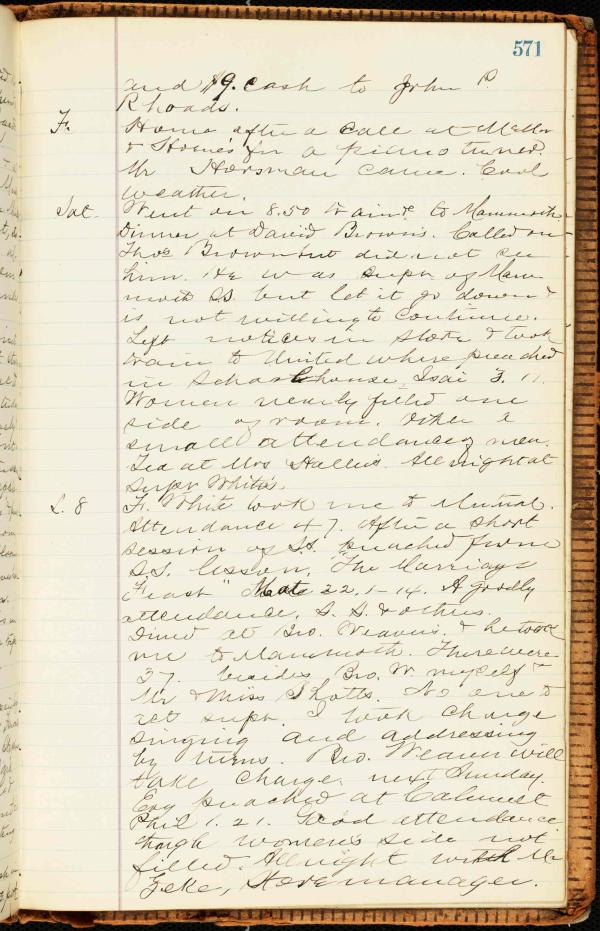 571
and $9. cash to John P.
Rhoads.
F. Home after a call at Mellor
& Homes for a piano tuner.
Mr Horsman came. Cool
weather.
Sat. Went on 8.50 train to Mammoth
Dinner at David Brown's. Called on
Thos Brown but did not see
him. He was supt of Mam
moth SS. but let it go down &
is not willing to continue.
Left notices in store & took
train to United where preached
in Schoolhouse, Isai 3. 11.
Women nearly filled one
side of room. Other a
small attendance of men.
Tea at Mrs Hallie's. All night at
Supt White's.
S. 8 F. White took me to Mutual.
Attendance 47. After a short
session of SS. preached from
SS. lesson, "The Marriage
Feast" Mat 22. 1-14. A goodly
attendance, S. S. & others.
Dined at Bro. Weaver's. & he took
me to Mammoth. There were
37. besides Bro. W. myself &
Mr & Miss Shotts. No one to
act supt. I took charge
singing and addressing
by turns. Bro. Weaver will
take charge next Sunday.
Eve preached at Calumet
Phil 1. 21. Good attendance
though women's side not
filled. All night with Mr
Zeke, Store manager.